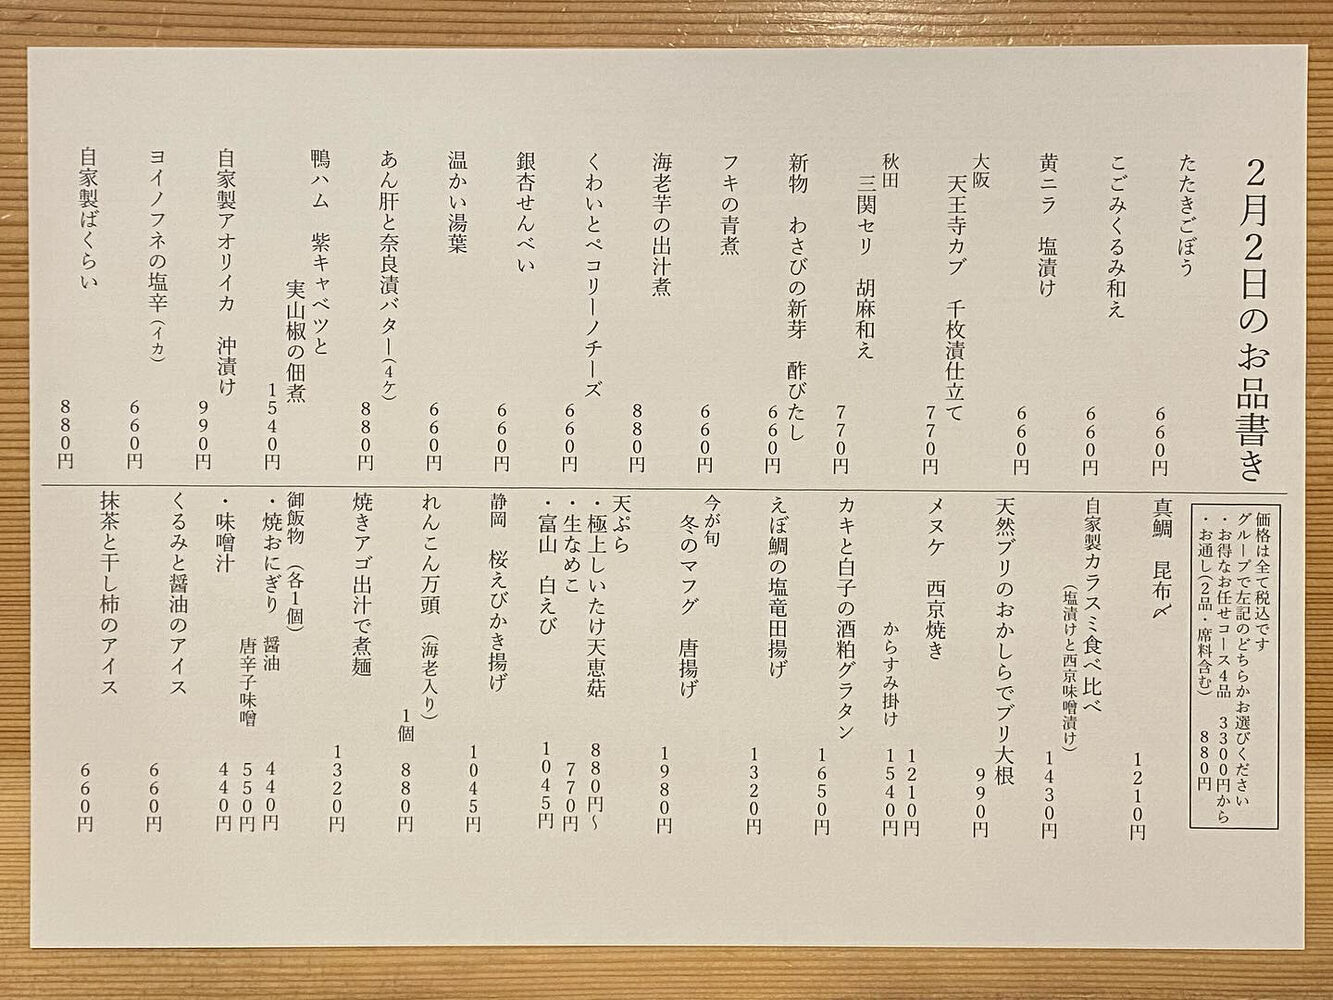 ２月２日のお品書き
たたきごぼう
660円
こごみくるみ和え
660円
黄ニラ　塩漬け
660円
大阪
天王寺カブ　千枚漬仕立て
770円
秋田
三関セリ　胡麻和え
770円
新物　わさびの新芽　酢びたし
660円
フキの青煮
660円
海老芋の出汁煮
880円
くわいとペコリーノチーズ
660円
銀杏せんべい
660円
温かい湯葉
660円
あん肝と奈良漬バター（4ケ）
880円
鴨ハム　紫キャベツと
実山椒の佃煮
1540円
自家製アオリイカ　沖漬け
990円
ヨイノフネの塩辛（イカ）
660円
自家製ばくらい
880円
価格は全て税込です
グループで左記のどちらかお選びください
・お得なお任せコース４品　3300円から
・お通し（２品・席料含む）　880円
真鯛　昆布〆
1210円
自家製カラスミ食べ比べ
（塩漬けと西京味噌漬け）
1430円
天然ブリのおかしらでブリ大根
990円
メヌケ　西京焼き
1210円
からすみ掛け　1540円
カキと白子の酒粕グラタン
1650円
えぼ鯛の塩竜田揚げ
1320円
今が旬
冬のマフグ　唐揚げ
1980円
天ぷら
・極上しいたけ天恵菇　880円～
・生なめこ　770円
・富山　白えび　1045円
静岡　桜えびかき揚げ
1045円
れんこん万頭　（海老入り）
1個　880円
焼きアゴ出汁で煮麺
1320円
御飯物　（各１個）
・焼おにぎり　醤油　440円
唐辛子味噌　550円
・味噌汁　440円
くるみと醤油のアイス
660円
抹茶と干し柿のアイス
660円